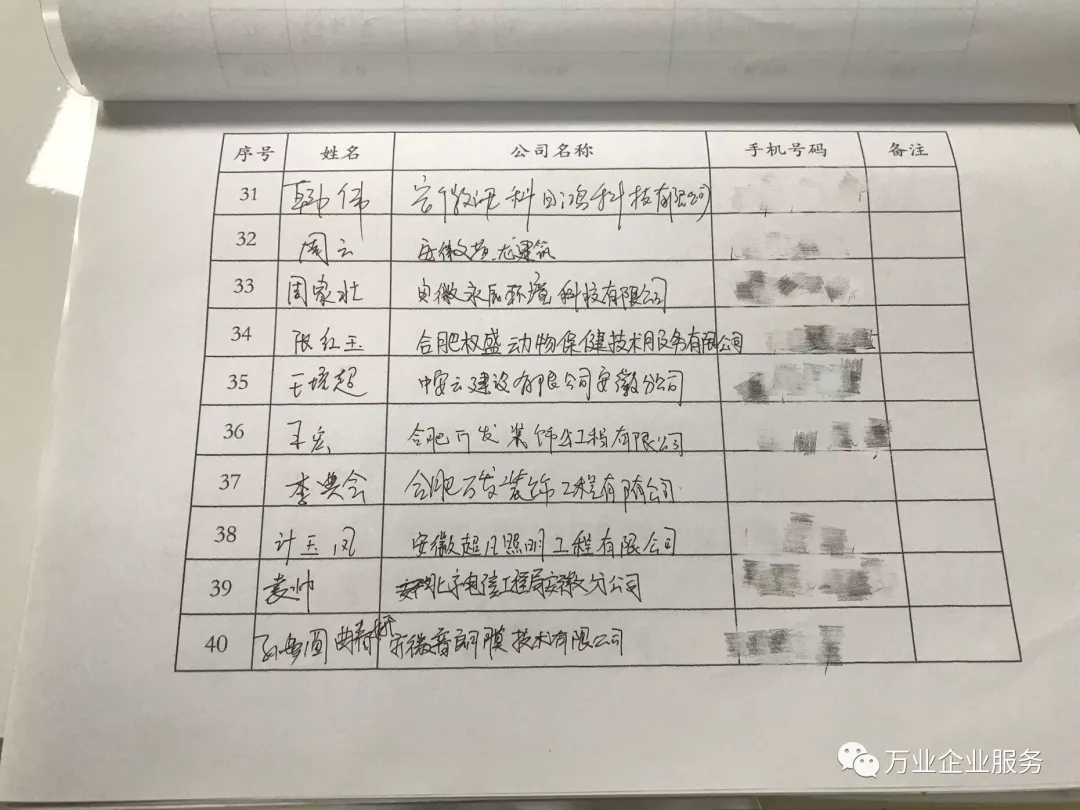 序号 姓名 公司名称 手机号码 备注
31 韩伟 安徽讯科日鸿科技有限公司
32 周云 安徽龙建筑
33 周家壮 安徽环境科技有限公司
34 张红玉 合肥权盛动物保健技术服务有限公司
35 王境超 中安云建设有限公司安徽分公司
36 王宏 合肥万发装饰工程有限公司
37 李典会 合肥万发装饰工程有限公司
38 计玉凤 安徽超凡照明工程有限公司
39 袁帅 北京电信工程局安徽分公司
40 安徽普朗膜技术有限公司
万业企业服务